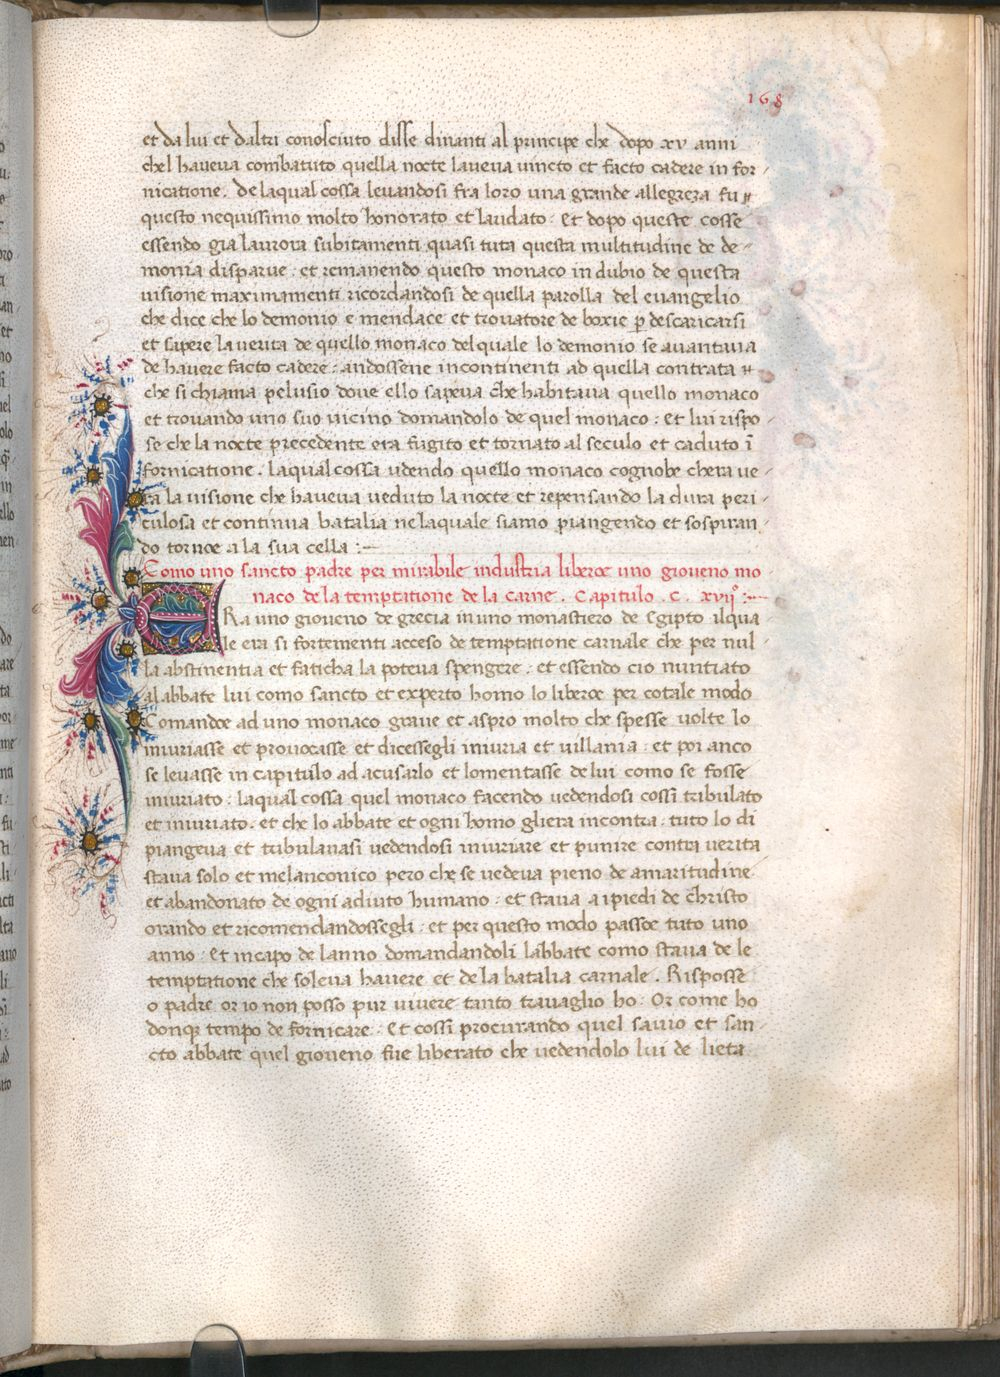 168
et da lui et daltri conosciuto disse dinanti al principe che dopo xv anni
chel haveva combatuto quella nocte laveva vincto et facto cadere in for-
nicatione. De laqual cossa levandosi fra loro una grande allegreza fu
questo nequissimo molto honorato et laudato. Et dopo queste cosse
essendo gia laurora subitamenti quasi tuta questa multitudine de de-
monia disparue. et remanendo questo monaco in dubio de questa
visione maximamenti ricordandosi de quella parolla del evangelio
che dice che lo demonio e mendace et trovatore de boxie p̲ descaricarsi
et sapere la verita de quello monaco delquale lo demonio se avantava
de havere facto cadere. andossene incontinenti ad quella contrata
che si chiama pelusio dove ello sapeva che habitava quello monaco
et trovando uno suo vicino domandolo de quel monaco. et lui rispo
se che la nocte precedente era fugito et tornato al seculo et caduto ī
fornicatione. laqual cossa udendo quello monaco cognobe chera ve-
ra la visione che haveva veduto la nocte et repensando la dura peri-
culosa et continua batalia nelaquale siamo piangendo et sospiran-
do tornoe a la sua cella :~
Como uno sancto padre per mirabile industria liberoe uno gioveno mo
naco de la temptatione de la carne. Capitulo. C. xvijº :~
ERa uno gioveno de grecia in uno monastiero de Egipto ilqua
le era si fortementi acceso de temptatione carnale che per nul
la abstinentia et faticha la poteva spengere. et essendo cio nuntiato
al abbate lui como sancto et experto homo lo liberoe per cotale modo
Comandoe ad uno monaco grave et aspro molto che spesse volte lo
iniuriasse et provocasse et dicessegli iniuria et villania. et poi anco
se levasse in capitulo ad acusarlo et lomentasse de lui como se fosse
iniuriato. laqual cossa quel monaco facendo vedendosi cossi tribulato
et iniuriato. et che lo abbate et ogni homo gliera incontra. tuto lo di
piangeva et tribulavasi vedendosi iniuriare et punire contra verita
stava solo et melanconico pero che se vedeva pieno de amaritudine
et abandonato de ogni adiuto humano. et stava a i piedi de christo
orando et ricomendandossegli. et per questo modo passoe tuto uno
anno. Et in capo de lanno domandandoli labbate como stava de le
temptatione che soleva havere et de la batalia carnale. Risposse
o padre or io non posso pur vivere tanto travaglio ho. Or come ho
donqz tempo de fornicare. Et cossi procurando quel savio et san-
cto abbate quel gioveno fue liberato che vedendolo lui de lieta